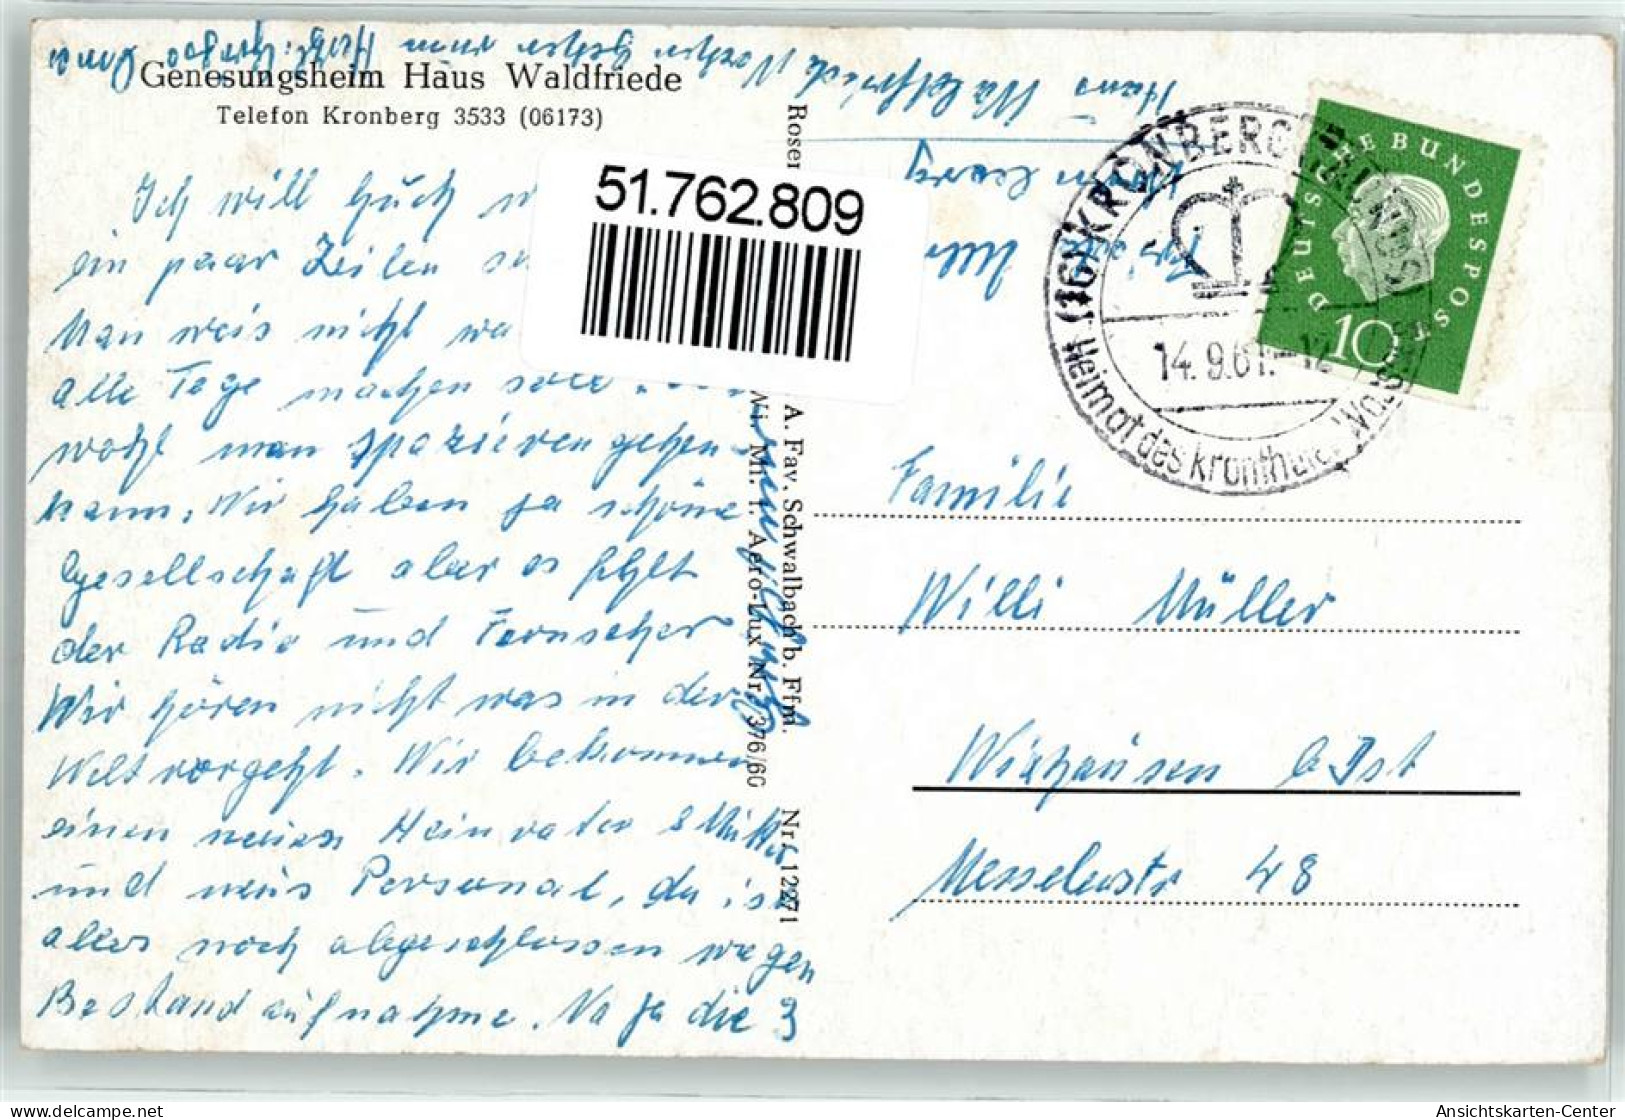 Genesungsheim Haus Waldfriede
Telefon Kronberg 3533 (06173)
Ich will Euch
ein paar Zeilen
Man weis nicht
alle Tage machen soll
wohl man spazieren gehen
kann. Wir haben ja schöne
Gesellschaft aber es fehlt
der Radio und Fernseher
Wir hören nicht was in der
Welt vorgeht. Wir bekommen
einen neuen Heimvater & Mutter
und neus Personal, da ist
alles noch abgeschlossen wegen
Bestandaufnahme. Na ja die 3
Wochen gehen rum Herzl.
Haus Waldfriede
51.762.809
Roser
A. Fav. Schwalbach b. Ffm.
Nr. 12271
Mn. 1. Aero-Lux Nr. 376/60
(16) KRONBERG (TAUNUS)
14.9.61.-12
Heimat des Kronthaler Wassers
DEUTSCHE BUNDESPOST
10
Familie
Willi Müller
Wixhausen b Dst
Messelerstr 48
Ansichtskarten-Center